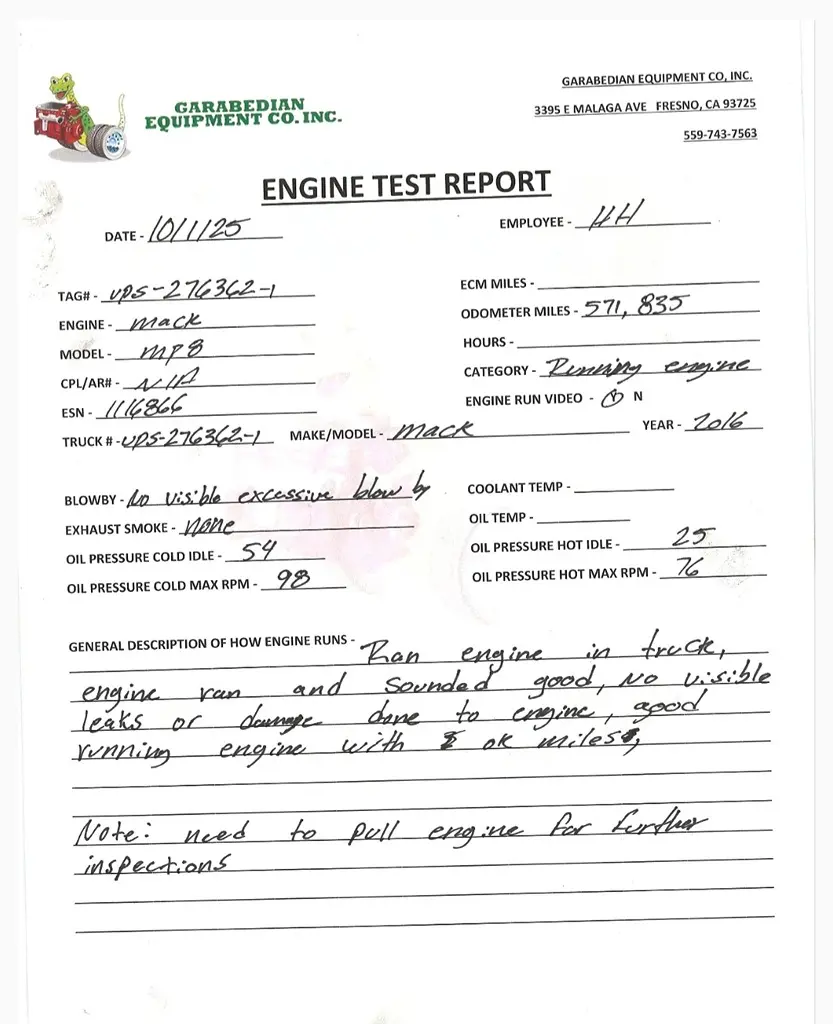 GARABEDIAN
EQUIPMENT CO. INC.
GARABEDIAN EQUIPMENT CO, INC.
3395 E MALAGA AVE FRESNO, CA 93725
559-743-7563
ENGINE TEST REPORT
DATE - 10/1/25
EMPLOYEE - HH
TAG# - UPS-276362-1
ENGINE - Mack
MODEL - MP8
CPL/AR# - N/A
ESN - 1116866
TRUCK # - UPS-276362-1 MAKE/MODEL - Mack YEAR - 2016
ECM MILES -
ODOMETER MILES - 571,835
HOURS -
CATEGORY - Running engine
ENGINE RUN VIDEO - Y N
BLOWBY - No visible excessive blow by
EXHAUST SMOKE - none
OIL PRESSURE COLD IDLE - 54
OIL PRESSURE COLD MAX RPM - 98
COOLANT TEMP -
OIL TEMP -
OIL PRESSURE HOT IDLE - 25
OIL PRESSURE HOT MAX RPM - 76
GENERAL DESCRIPTION OF HOW ENGINE RUNS - Ran engine in truck,
engine ran and sounded good, No visible
leaks or damage done to engine, good
running engine with ok miles,
Note: need to pull engine for further
inspections